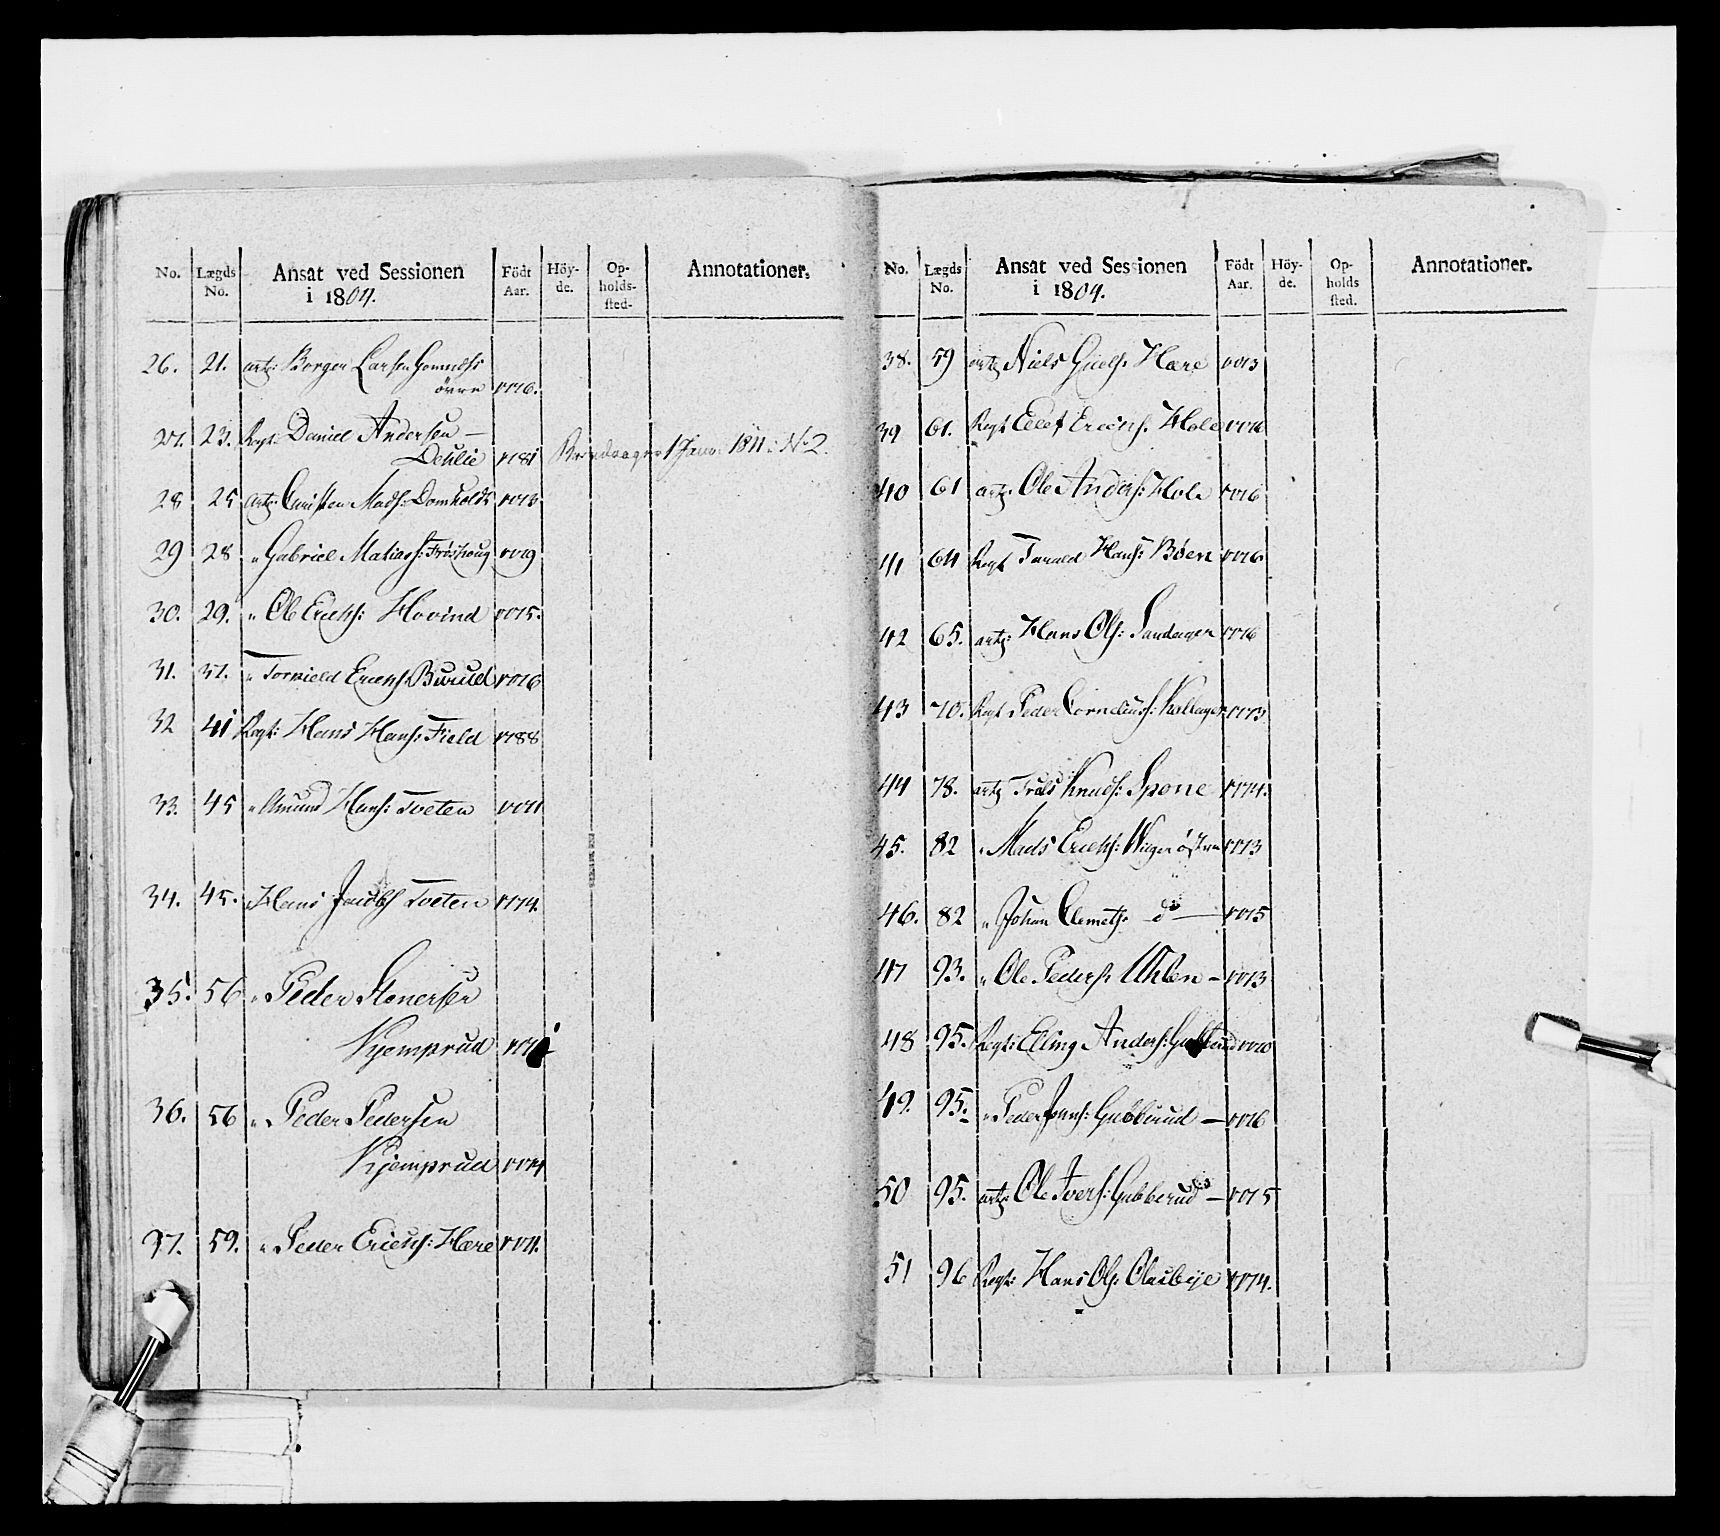 No. Lægds No. Ansat ved Sessionen i 1804. Födt Aar. Höyde. Opholdssted. Annotationer.
26. 21. artz: Borger Larsen Gomnæss
övre 1776.
27. 23. Regt: Daniel Andersen —
Deulie 1781 1 Janv: 1811: No 2.
28 25 artz: Christen Mads: Domholdt 1773
29 28 " Gabriel Matiass: Frøshoug 1779
30. 29. " Ole Ericks: Hovind 1775.
31. 37. " Torkield Ericks: Buruld 1776
32 41 Regt: Hans Hans: Field 1788
33. 45 " Amund Hans: Tveten 1771
34. 45. " Hans Jacobs: Tveten 1774.
35. 56 " Peder Stenersen
Kjemprud
36. 56 " Peder Pedersen
Kjemprud 1774
37. 59. " Peder Ericks: Hære 1771.
No. Lægds No. Ansat ved Sessionen i 1804. Födt Aar. Höyde. Opholds sted. Annotationer.
38. 59 artz Niels Guels: Hære 1773
39 61. Regt Ellef Ericks: Hole
40 61 artz: Ole Anders: Hole 1776
41 64 Regt Hans: Bøen 1776
42 65. artz: Hans Ols: Sandager 1776
43 70. Regt Peder Cornelius: 1773
44 78. artz Truls Knuds: Spone 1774.
45. 82 " Mads Ericks: Wiger østre 1773
46. 82 " Johan Clemets: do — 1775
47 93. " Ole Peders: Uhlen — 1773
48 95. Regt: Elling Anders: Gubberud 1770
49. 95. " Peder Jens: Gubberud — 1776
50 95. artz: Ole Ivers: Gubberud — 1775
51 96 Regt: Hans Ols: Olusbye 1774.